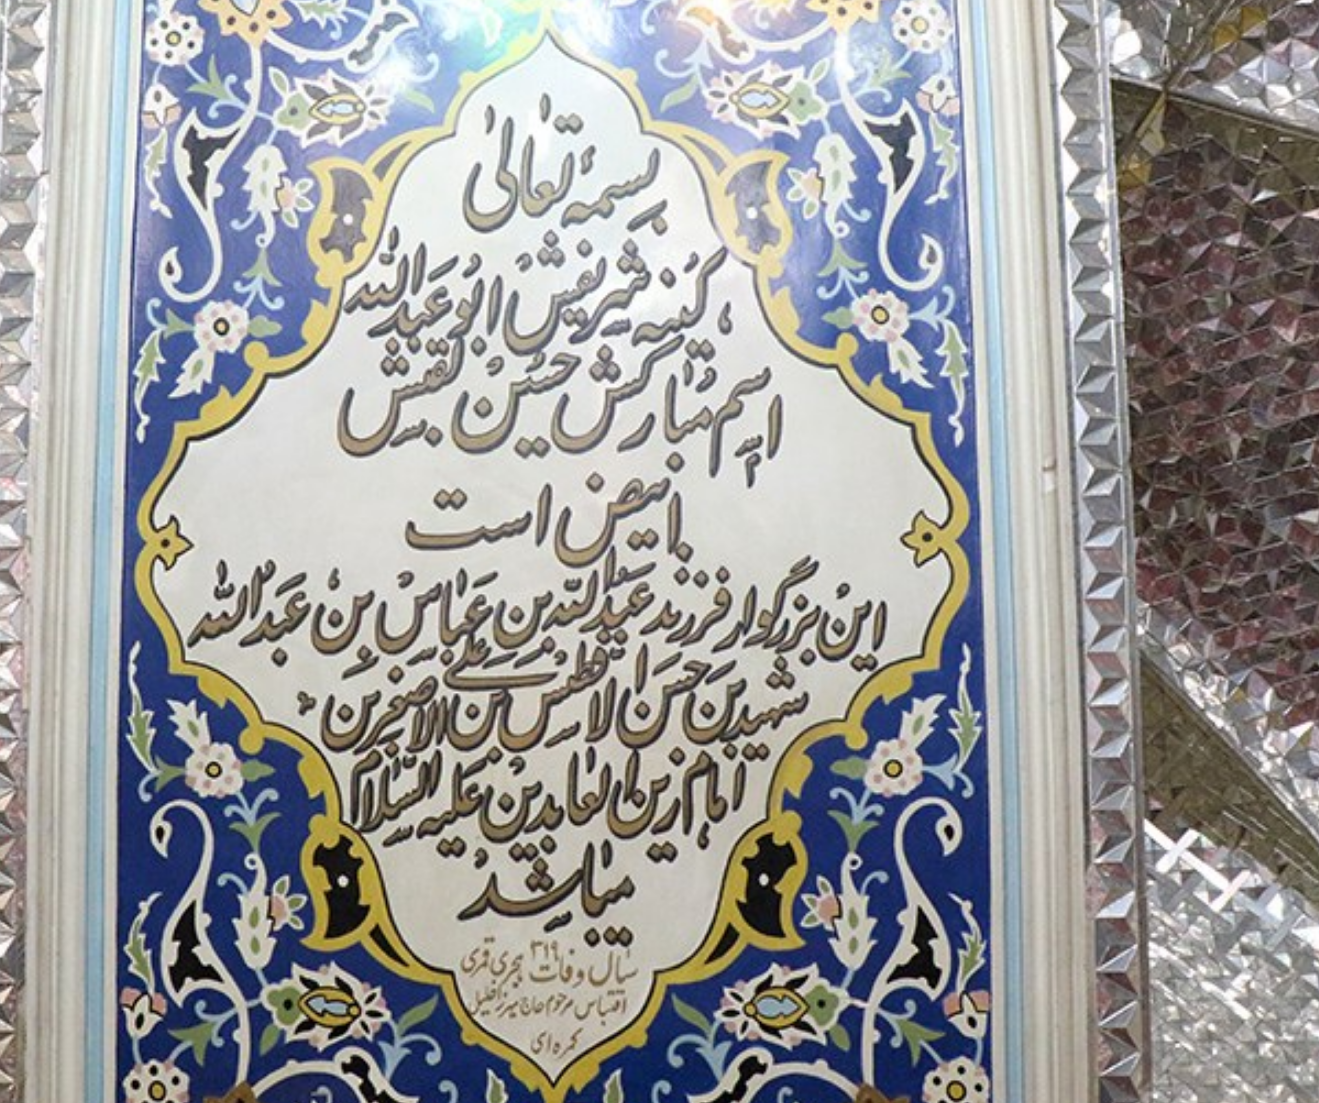 بسمه تعالی
کنیه شریفش ابوعبدالله
اسم مبارکش حسین لقبش
ابیض است
این بزرگوار فرزند عبدالله بن عباس بن عبدالله
شهید بن حسن الافطس بن علی الاصغر بن
امام زین العابدین علیه السلام
میباشد
سال وفات ۳۱۹ هجری قمری
اقتباس مرحوم حاج میرزا خلیل
کمره ای